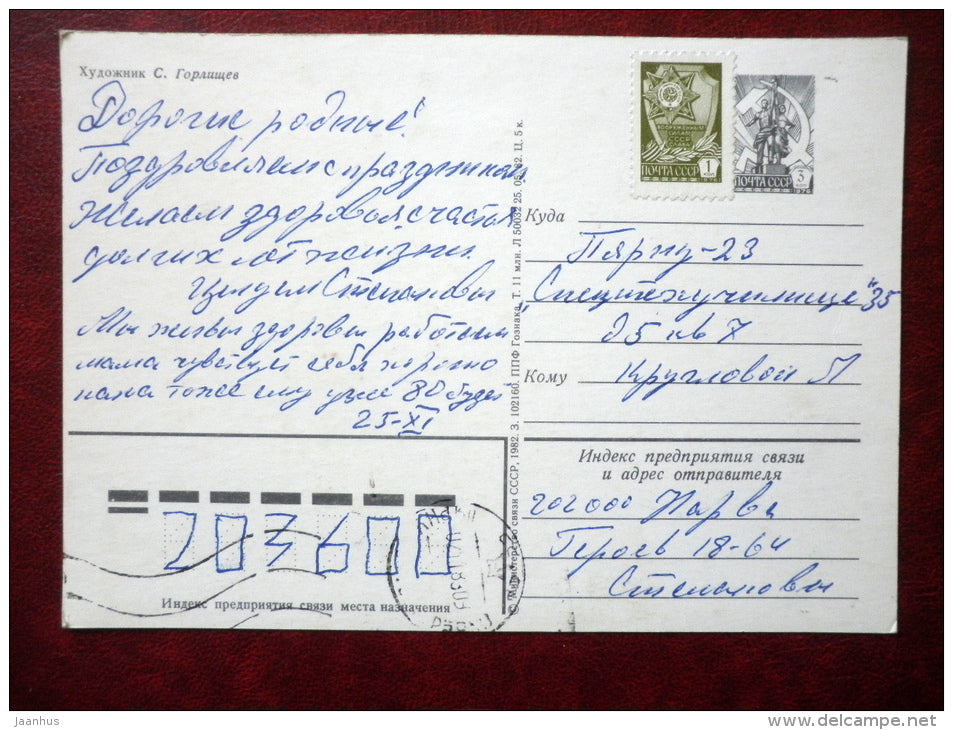 Художник С. Горлищев
Дорогие родные!
Поздравляем с праздником
Желаем здоровья, счастья
долгих лет жизни.
Целуем Степановы
Мы живы здоровы работаем
мама чувствует себя хорошо
папа тоже ему уже 80 будет
25-XI
ВООРУЖЕННЫМ
СИЛАМ
СССР
СЛАВА
1
КОП
ПОЧТА СССР
1976
3
ПОЧТА СССР
1976
Куда
Пярну-23
Спецтехучилище "35
Д5 кв 7
Кому Кругловой Л
Индекс предприятия связи
и адрес отправителя
202000 Нарва
Героев 18-64
Степановы
203600
Индекс предприятия связи места назначения
© Министерство связи СССР, 1982. З. 102160. ППФ Гознака. Т. 11 млн. Л 50032 25. 05. 82. Ц. 5 к.
Jaanhus
www.delcampe.net